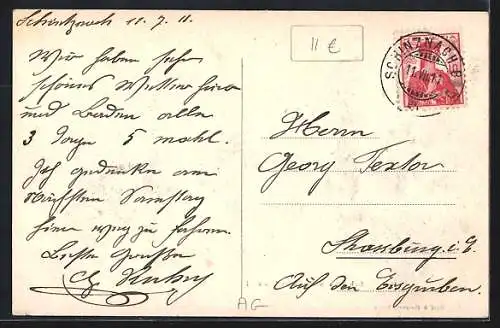 Schintznach 11.7.11.
Wir haben sehr
schönes Wetter hier
und Baden alle
3 Tagen 5 mahl.
Ich gedenke am
Nächsten Samstag
hier weg zu fahren.
Beste Grüsse
11 €
SCHINZNACH-B
11.VII.11
Herrn
Georg Textor
Strassburg i. E.
Auf den
AG